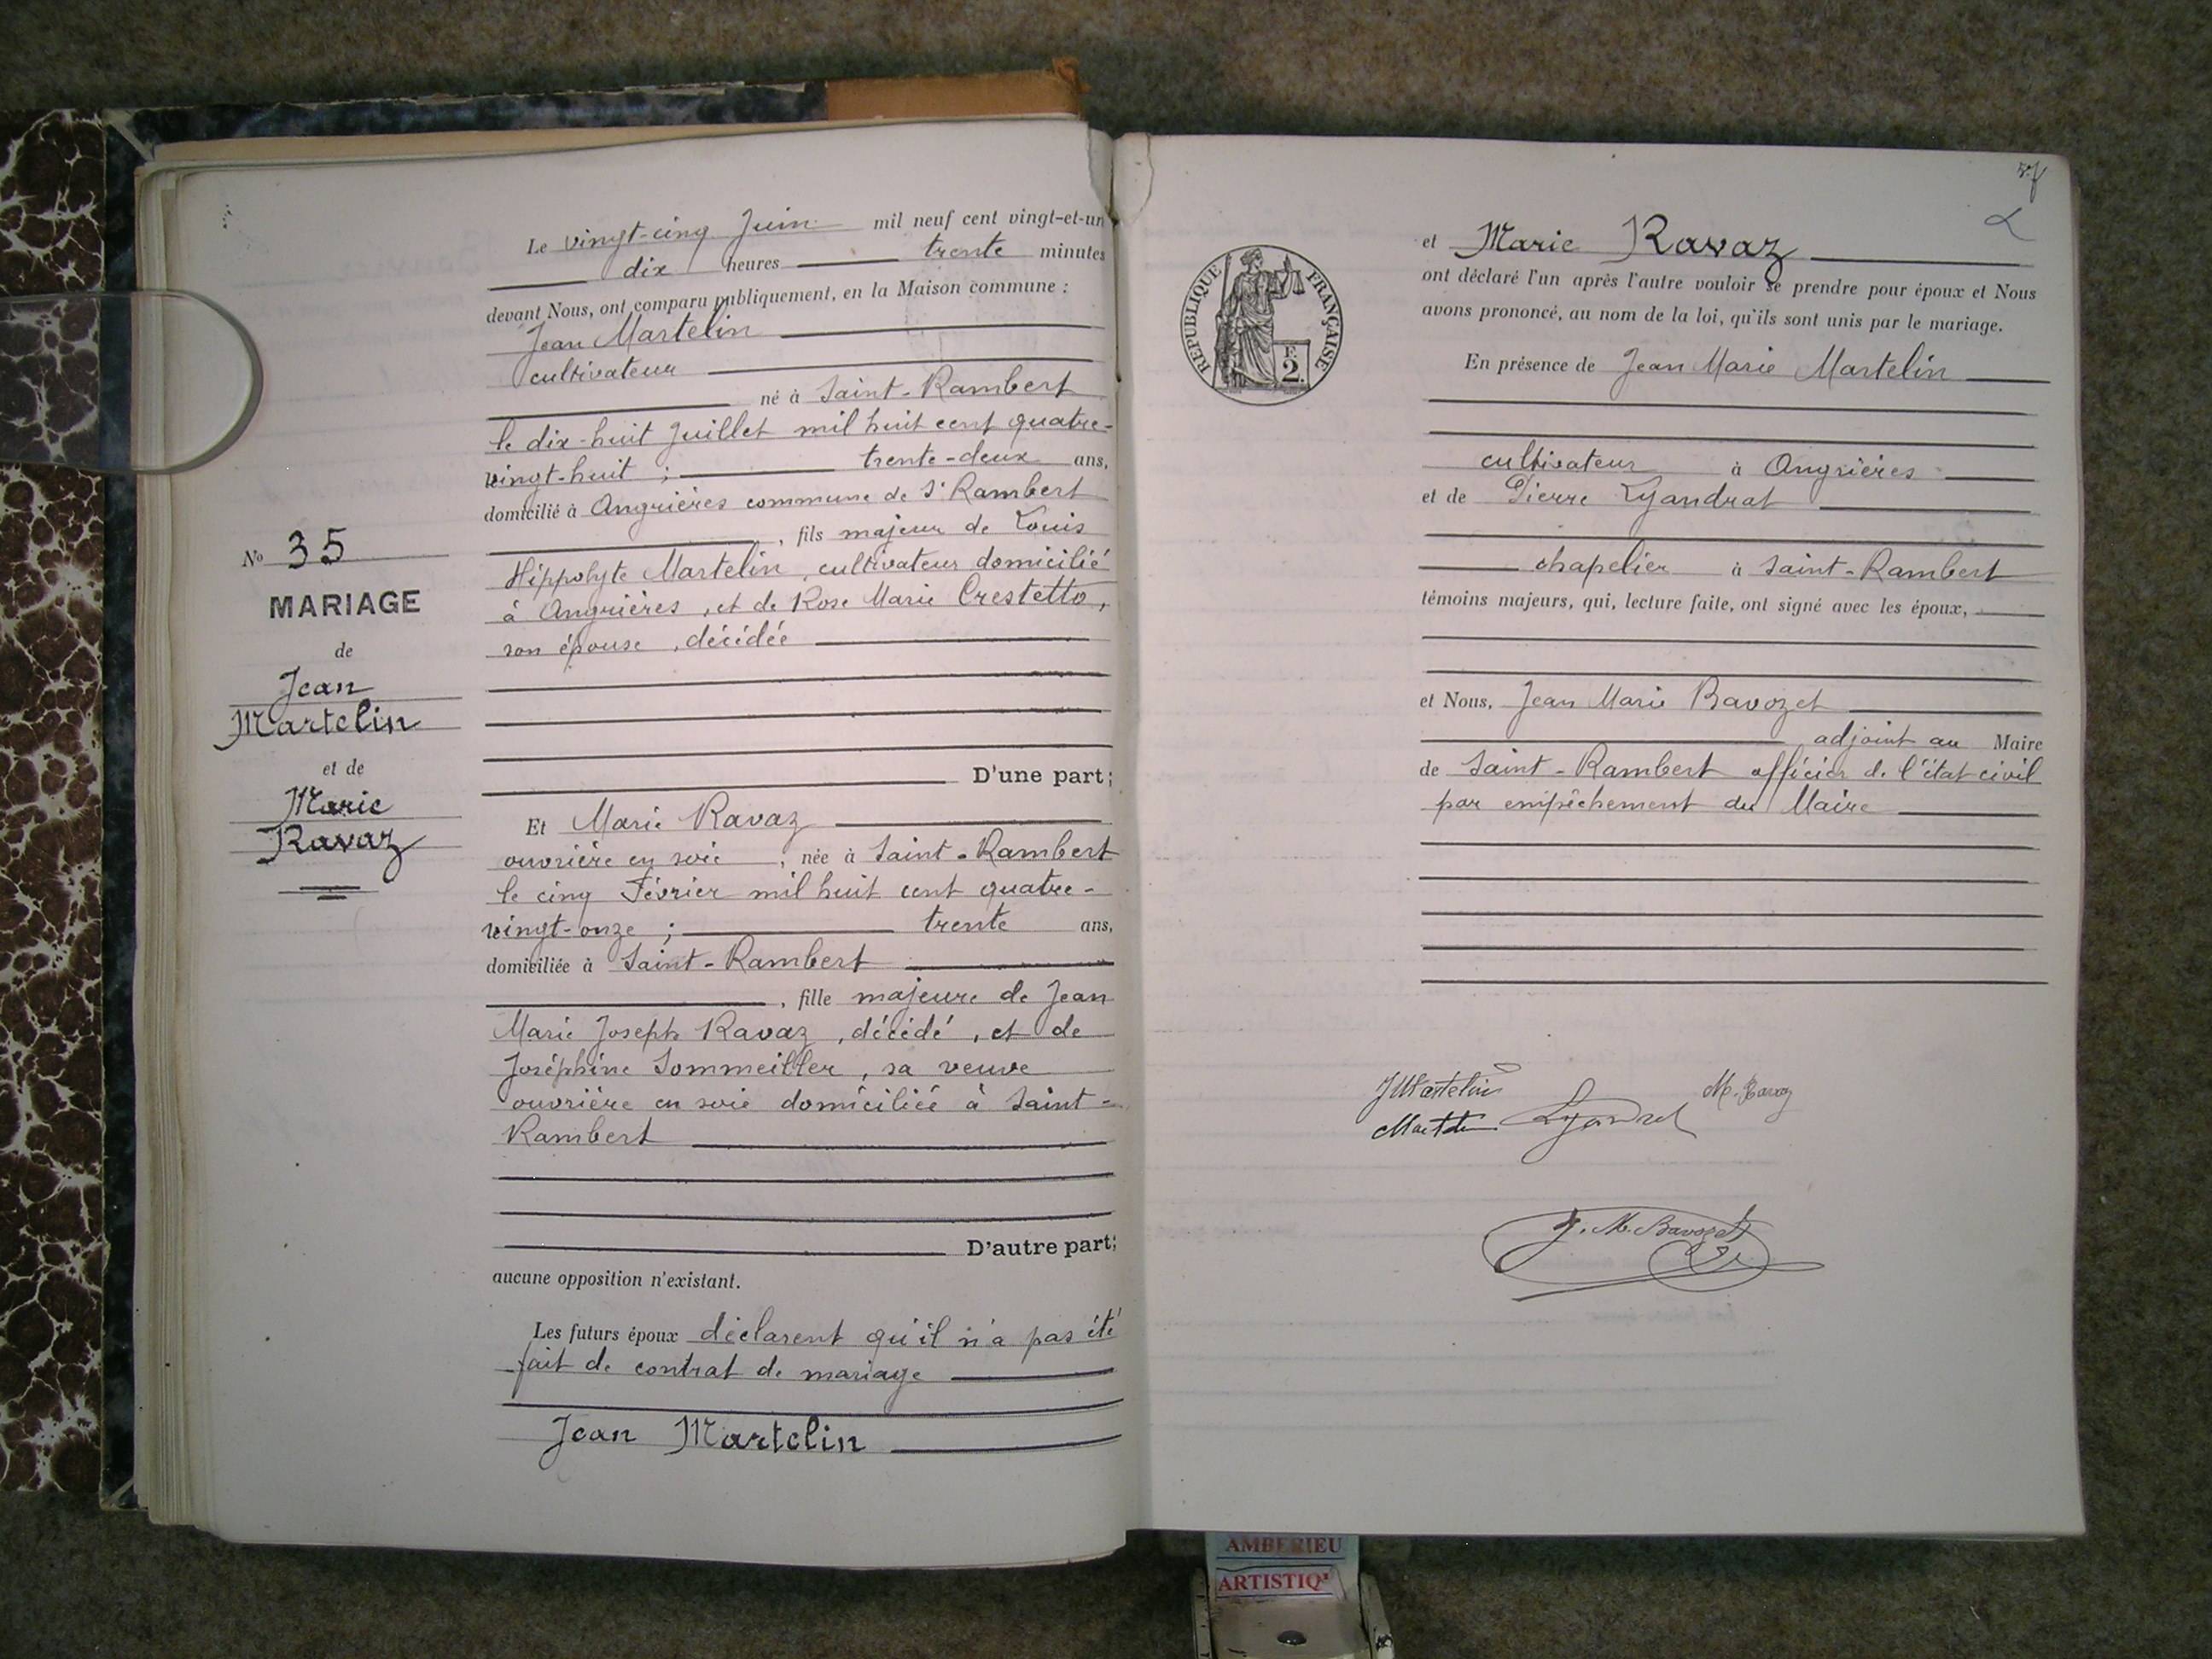 Le vingt-cinq Juin mil neuf cent vingt-et-un
dix heures trente minutes
devant Nous, ont comparu publiquement, en la Maison commune :
Jean Martelin
cultivateur
né à Saint-Rambert
le dix-huit Juillet mil huit cent quatre-
vingt-huit ; trente-deux ans,
domicilié à Angrières commune de St Rambert
, fils majeur de Louis
Hippolyte Martelin, cultivateur domicilié
à Angrières, et de Rose Marie Crestetto,
son épouse, décédée
D'une part;
No 35
MARIAGE
de
Jean
Martelin
et de
Marie
Ravaz
Et Marie Ravaz
ouvrière en soie, née à Saint-Rambert
le cinq Février mil huit cent quatre-
vingt-onze ; trente ans,
domiciliée à Saint-Rambert
, fille majeure de Jean
Marie Joseph Ravaz, décédé, et de
Joséphine Sommeiller, sa veuve
ouvrière en soie domiciliée à Saint-
Rambert
D'autre part;
aucune opposition n'existant.
Les futurs époux déclarent qu'il n'a pas été
fait de contrat de mariage
Jean Martelin
et Marie Ravaz
ont déclaré l'un après l'autre vouloir se prendre pour époux et Nous
avons prononcé, au nom de la loi, qu'ils sont unis par le mariage.
RÉPUBLIQUE FRANÇAISE
F.
2.
En présence de Jean Marie Martelin
cultivateur à Angrières
et de Pierre Lyandrat
chapelier à Saint-Rambert
témoins majeurs, qui, lecture faite, ont signé avec les époux,
et Nous, Jean Marie Bavozet
adjoint au Maire
de Saint-Rambert officier de l'état civil
par empêchement du Maire
JMartelin M. Ravaz
J. M. Bavozet
AMBERIEU
ARTISTIQ